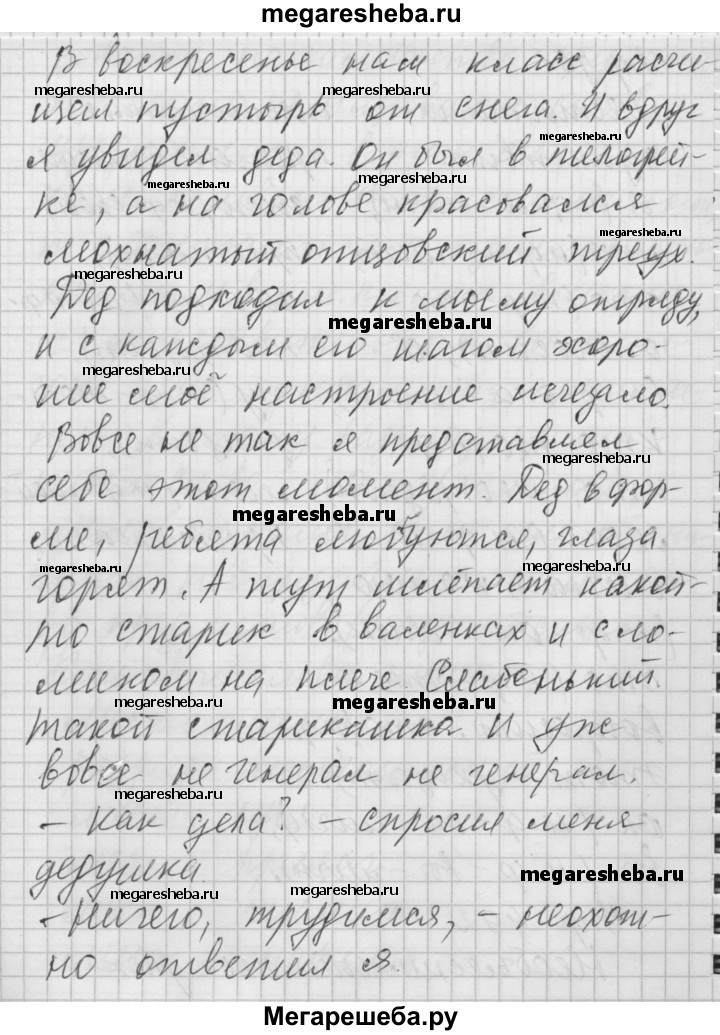 megaresheba.ru
В воскресенье наш класс расчи-
megaresheba.ru megaresheba.ru
щал пустырь от снега. И вдруг
megaresheba.ru
я увидел деда. Он был в телогрей-
megaresheba.ru megaresheba.ru
ке, а на голове красовался
megaresheba.ru
мохнатый отцовский треух.
megaresheba.ru
Дед подходил к моему отряду,
megaresheba.ru
и с каждым его шагом хоро-
megaresheba.ru
шее моё настроение исчезало.
Вовсе не так я представлял
megaresheba.ru
себе этот момент. Дед в фор-
megaresheba.ru
ме, ребята любуются, глаза
megaresheba.ru
горят. А тут шлёпает какой-
то старик в валенках и с ло-
миком на плече. Слабенький
megaresheba.ru megaresheba.ru
такой старикашка. И уж
вовсе не генерал не генерал.
megaresheba.ru
- Как дела? - спросил меня
дедушка.
megaresheba.ru megaresheba.ru megaresheba.ru
- Ничего, трудимся, - неохот-
но ответил я.
Мегарешеба.ру